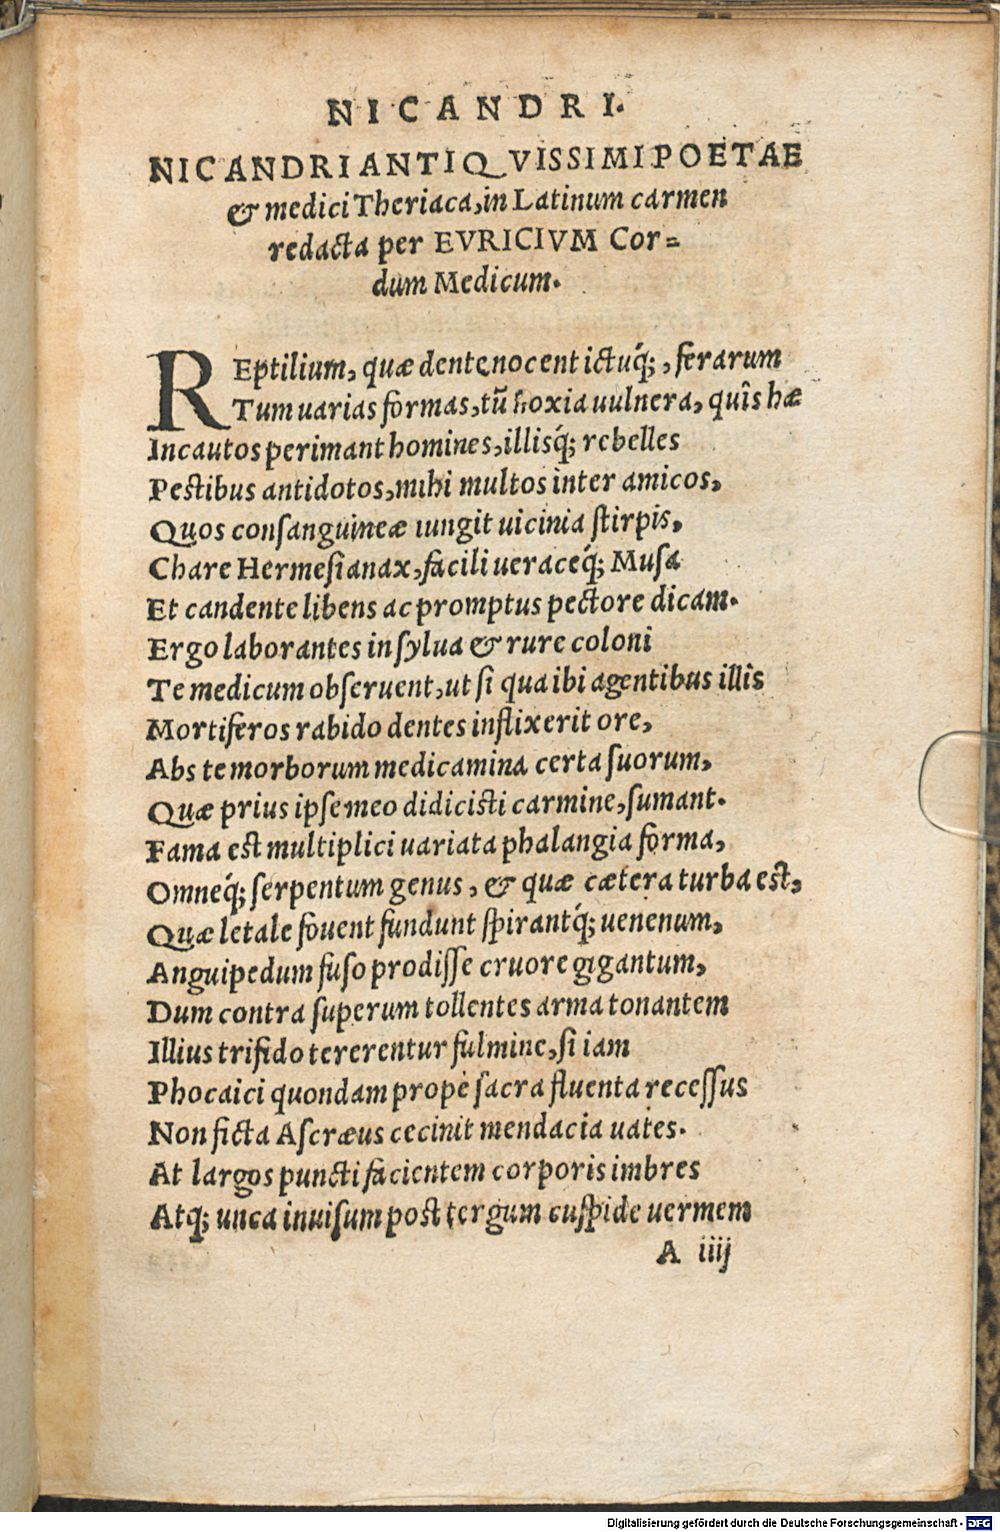 NICANDRI.
NICANDRI ANTIQVISSIMI POETAE
& medici Theriaca, in Latinum carmen
redacta per EVRICIVM Cor=
dum Medicum.
REptilium, quæ dente nocent ictuq́;, ferarum
Tum uarias formas, tū noxia uulnera, quîs hæ
Incautos perimant homines, illisq́; rebelles
Pestibus antidotos, mihi multos inter amicos,
Quos consanguineæ iungit uicinia stirpis,
Chare Hermesianax, facili ueraceq́; Musa
Et candente libens ac promptus pectore dicam.
Ergo laborantes in sylua & rure coloni
Te medicum obseruent, ut si qua ibi agentibus illîs
Mortiferos rabido dentes inflixerit ore,
Abs te morborum medicamina certa suorum,
Quæ prius ipse meo didicisti carmine, sumant.
Fama est multiplici uariata phalangia forma,
Omneq́; serpentum genus, & quæ cætera turba est,
Quæ letale fouent fundunt spirantq́; uenenum,
Anguipedum fuso prodisse cruore gigantum,
Dum contra superum tollentes arma tonantem
Illius trifido tererentur fulmine, si iam
Phocaici quondam propè sacra fluenta recessus
Non ficta Ascræus cecinit mendacia uates.
At largos puncti facientem corporis imbres
Atq; unca inuisum post tergum cuspide uermem
A iiij
Digitalisierung gefördert durch die Deutsche Forschungsgemeinschaft - DFG